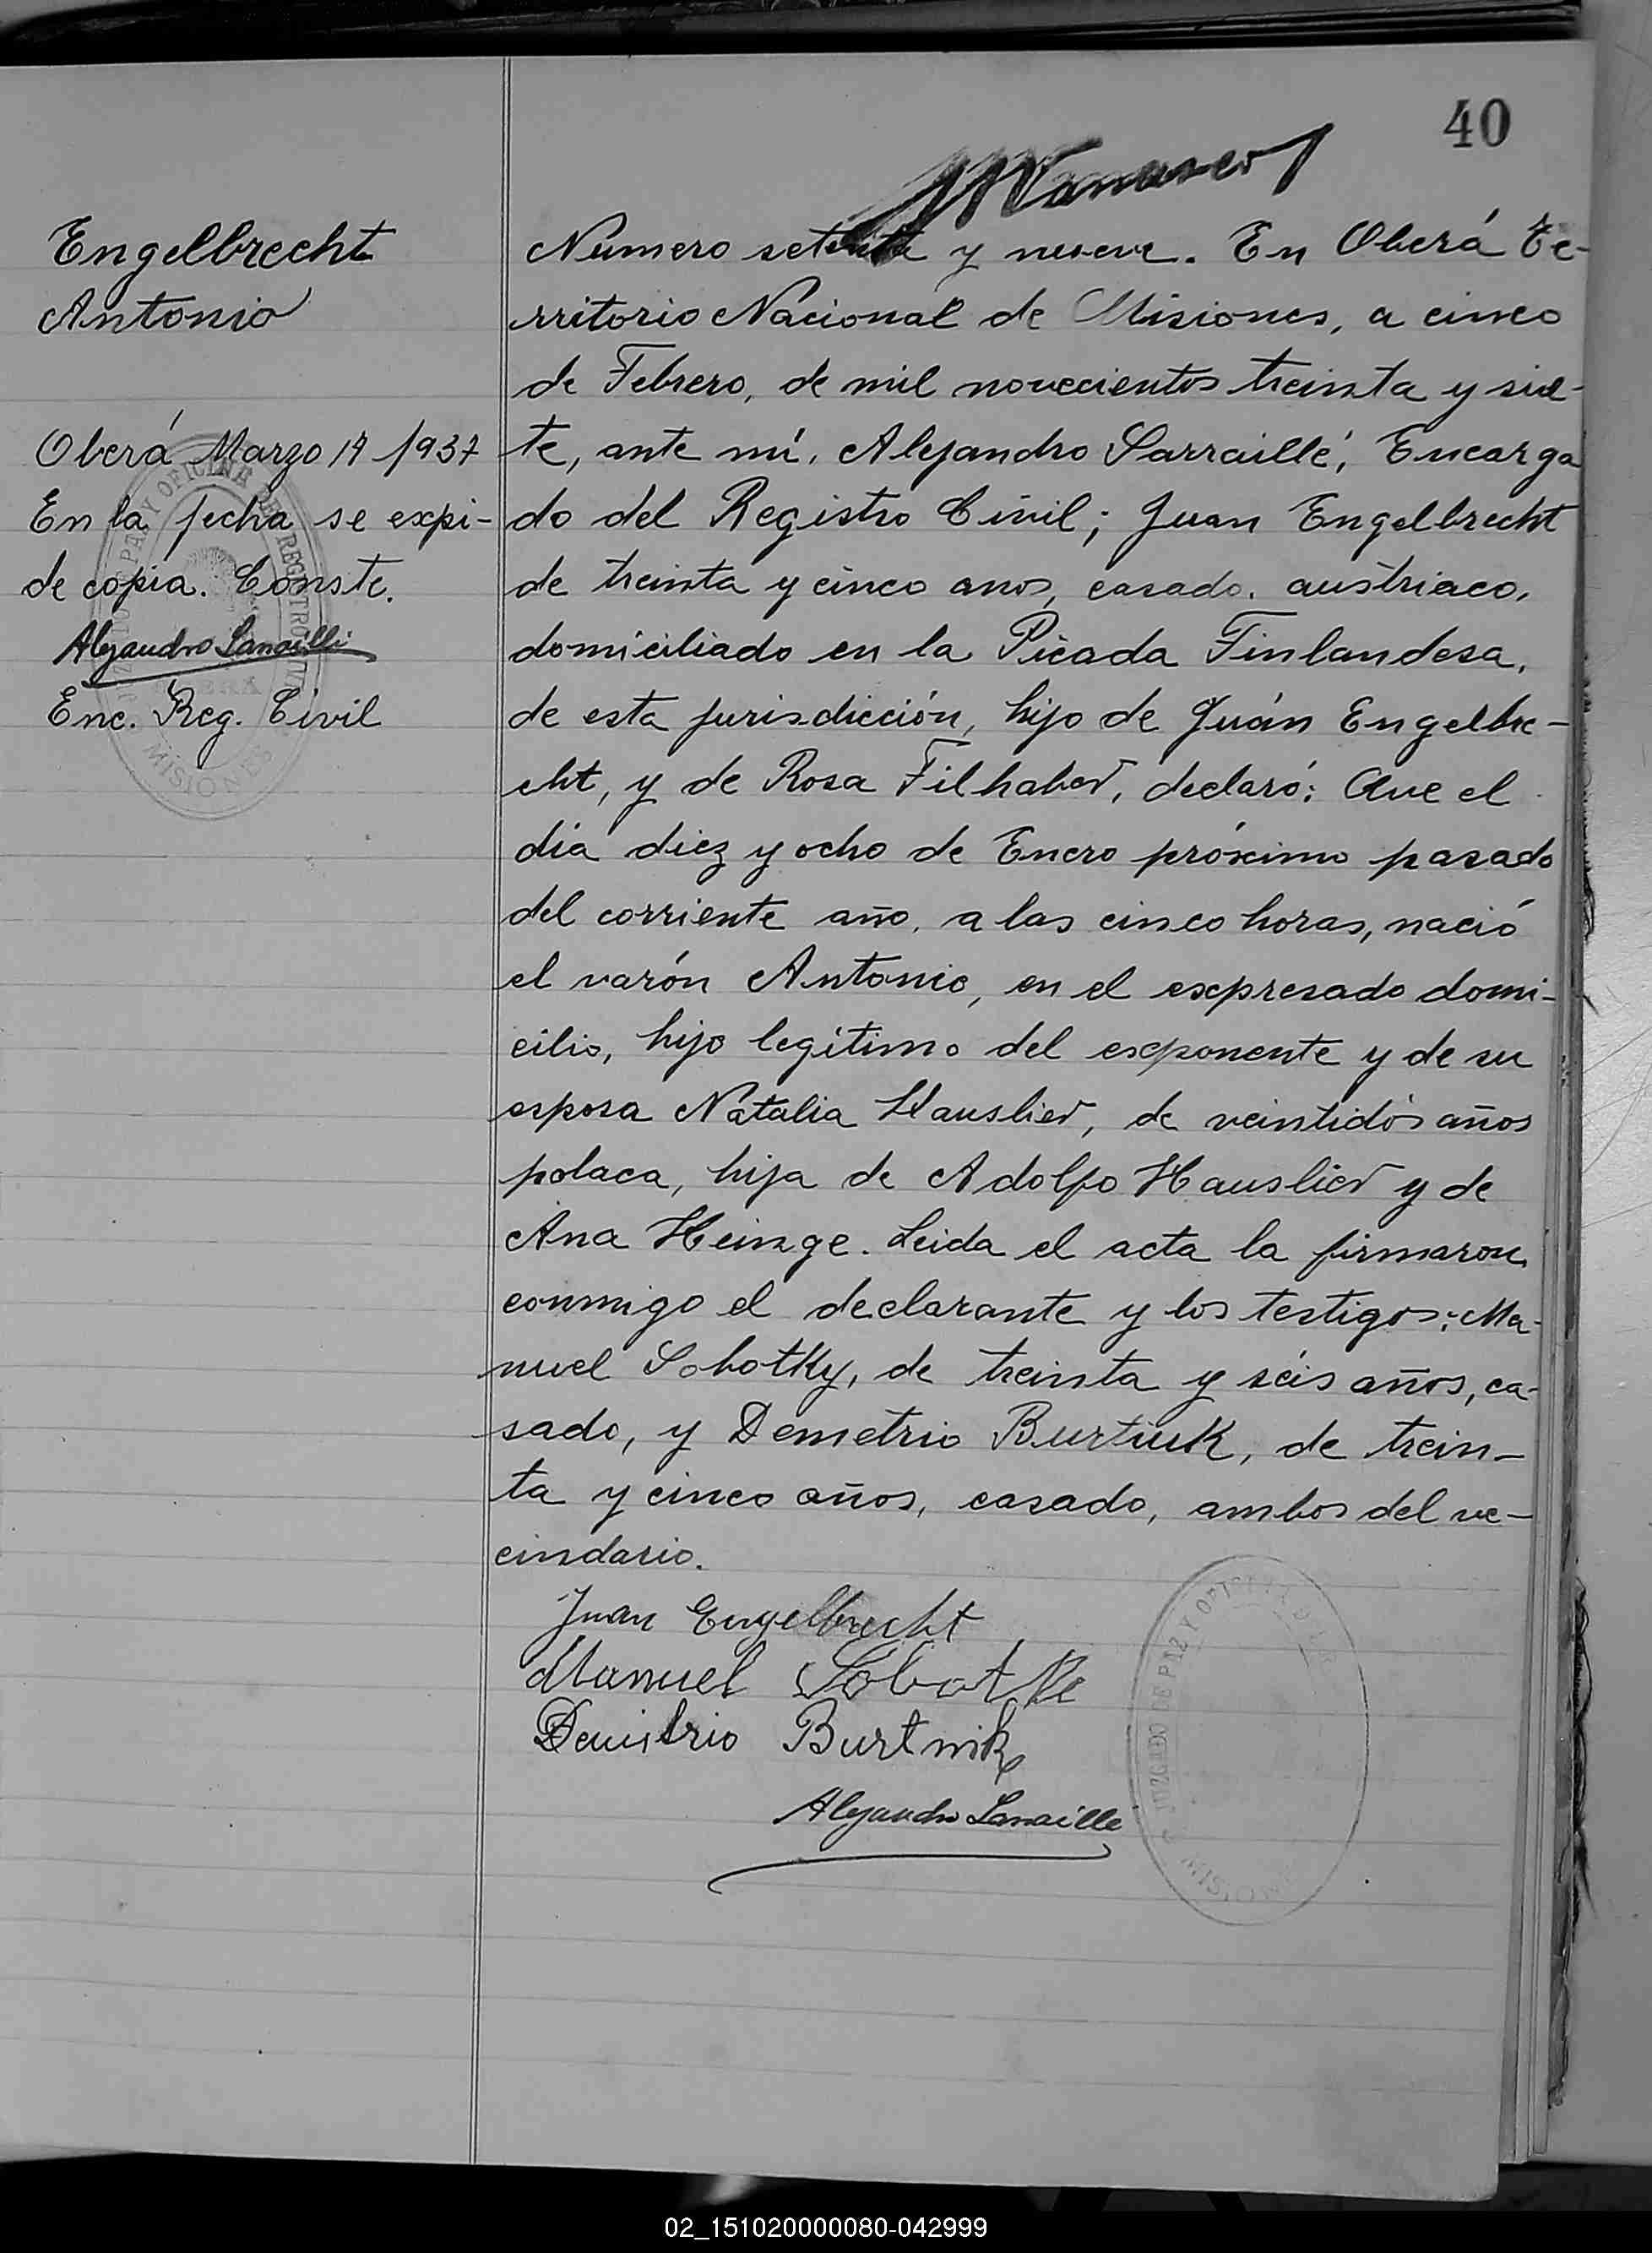 40
Engelbrecht
Antonio
Oberá Marzo 17 1937
En la fecha se expi-
de copia. Conste.
Alejandro Sarraillé
Enc. Reg. Civil
MISIONES
Numero setenta y nueve. En Oberá Te-
rritorio Nacional de Misiones, a cinco
de Febrero, de mil novecientos treinta y sie-
te, ante mí, Alejandro Sarraillé, Encarga
do del Registro Civil; Juan Engelbrecht
de treinta y cinco anos, casado, austriaco,
domiciliado en la Picada Finlandesa,
de esta jurisdicción, hijo de Juán Engelbre-
cht, y de Rosa Filhaber, declaró: Que el
dia diez y ocho de Enero próximo pasado
del corriente año, a las cinco horas, nació
el varón Antonio, en el expresado domi-
cilio, hijo legítimo del exponente y de su
esposa Natalia Hauslier, de veintidós años
polaca, hija de Adolfo Hauslier y de
Ana Heinze. Leida el acta la firmaron
conmigo el declarante y los testigos: Ma-
nuel Sobotky, de treinta y séis años, ca-
sado, y Demetrio Burtiuk, de trein-
ta y cinco años, casado, ambos del ve-
cindario.
Juan Engelbrecht
Manuel Sobotke
Demitrio Burtnik
Alejandro Sarraillé
JUZGADO DE PAZ Y OFICINA
MISIONES
02_151020000080-042999